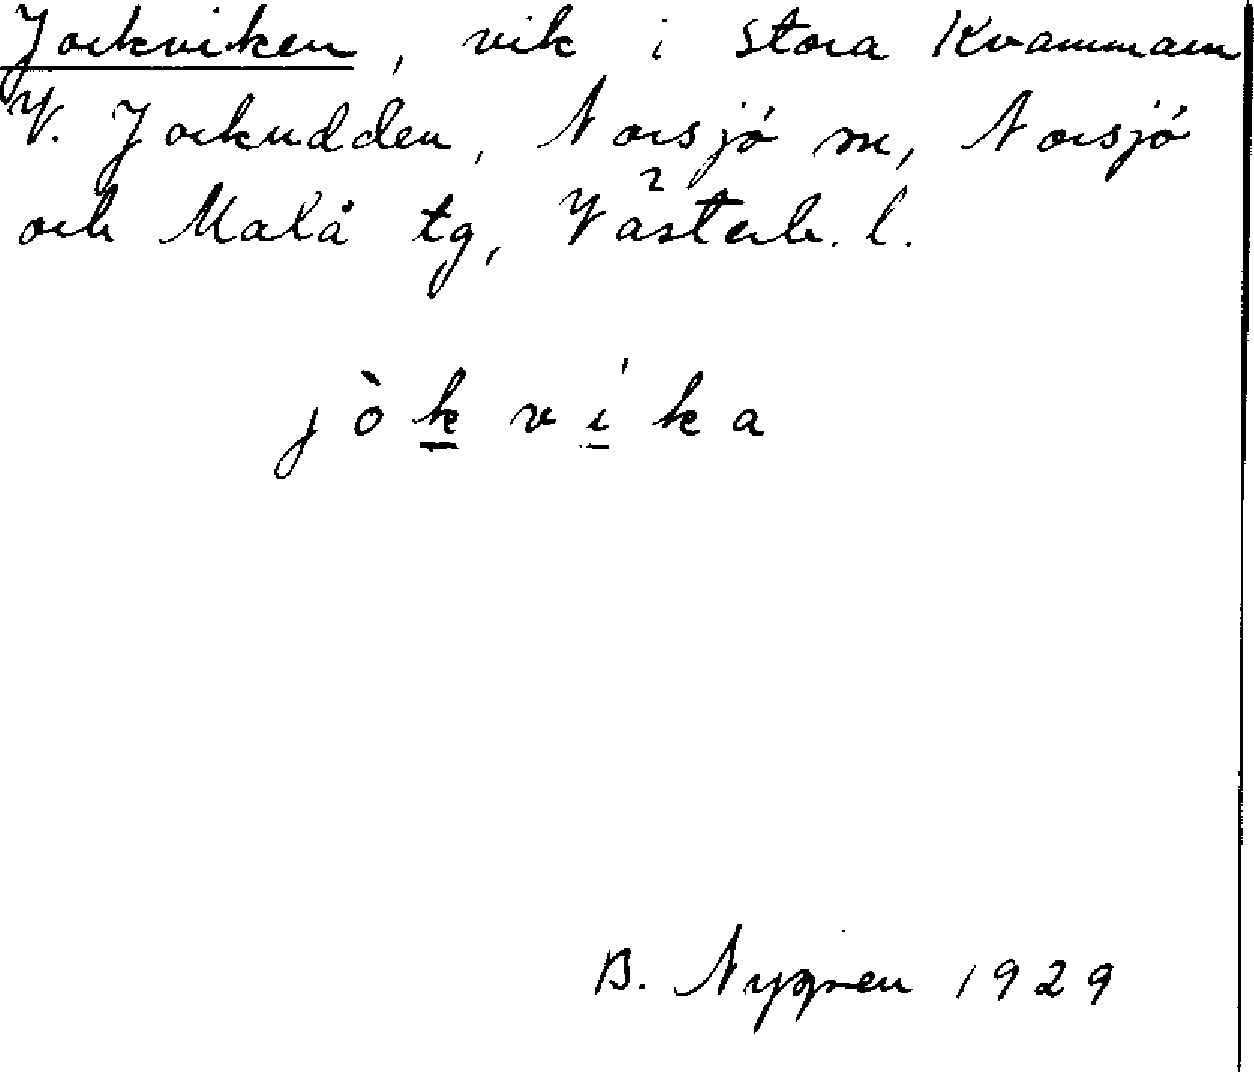 Jorkviken, vik i stora Kvammarn
V. Jorkudden, Norsjö m, Norsjö
och Malå tg, Västerb. l.
jòkvíka
B. Nygren 1929